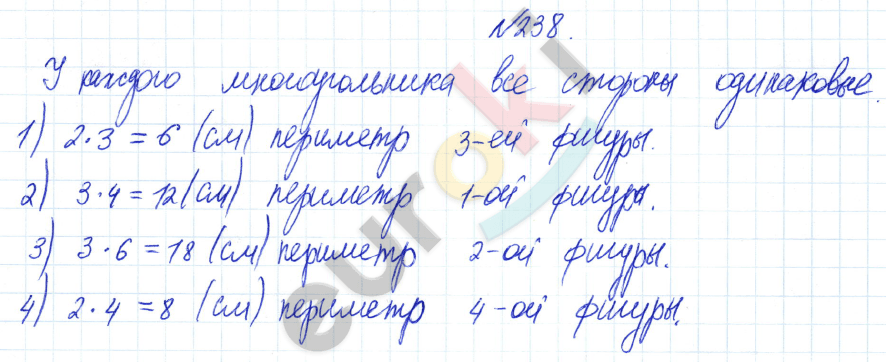 №238.
У каждого многоугольника все стороны одинаковые.
1) 2·3 = 6 (см) периметр 3-ей фигуры.
2) 3·4 = 12 (см) периметр 1-ой фигуры.
3) 3·6 = 18 (см) периметр 2-ой фигуры.
4) 2·4 = 8 (см) периметр 4-ой фигуры.
euroki